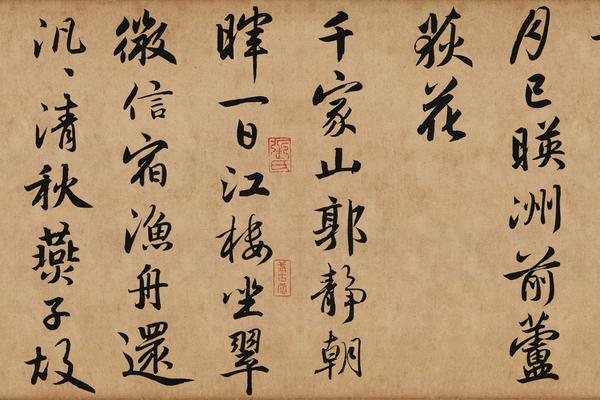 月已暎洲前蘆
荻花
千家山郭靜朝
暉一日江樓坐翠
微信宿漁舟還
汎、清秋燕子故